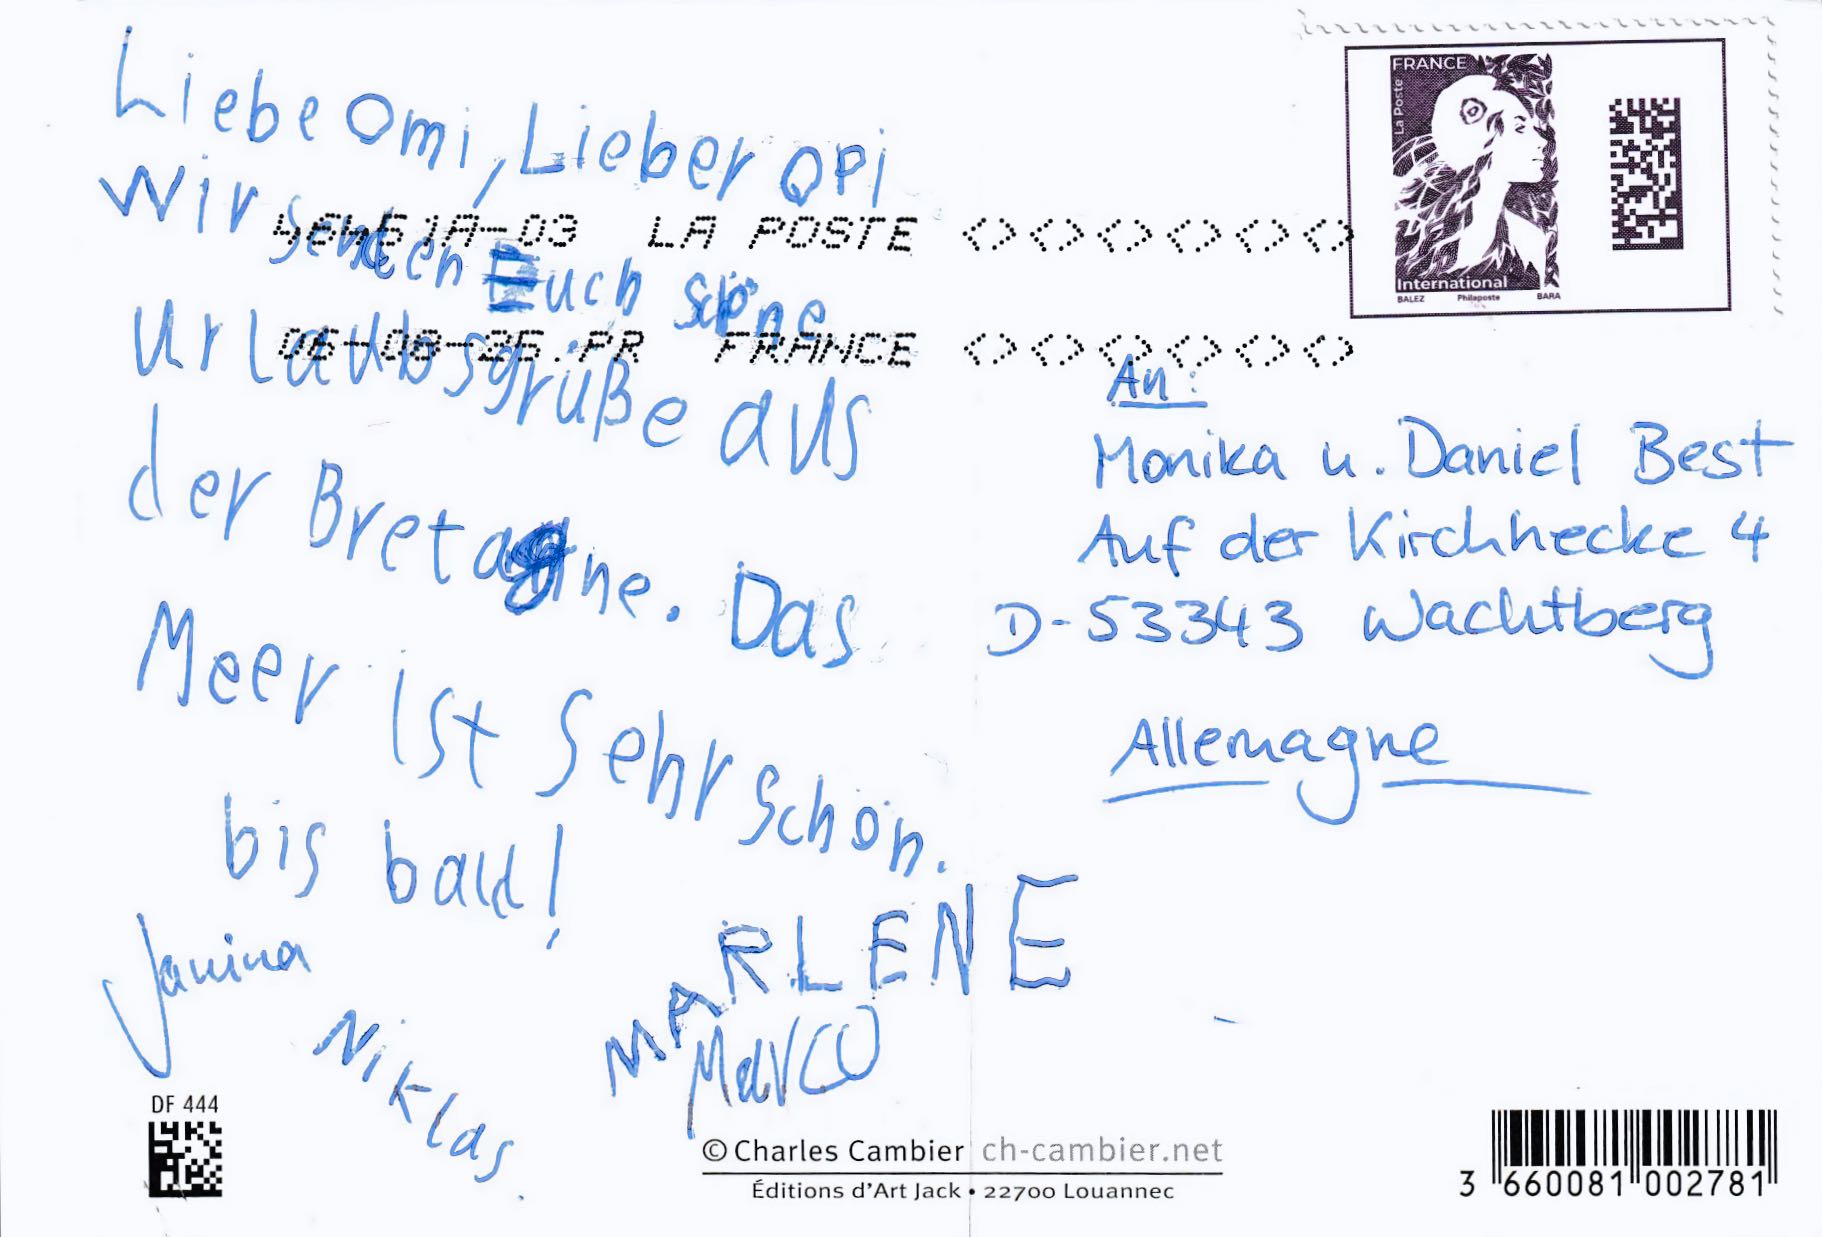 Liebe Omi, Lieber Opi
Wir senden Euch schöne
Urlaubsgrüße aus
der Bretagne. Das
Meer ist sehr schön.
bis bald!
Janina
Niklas.
MARLENE
Marco
LA POSTE
FRANCE
FRANCE
La Poste
International
BALEZ Philaposte BARA
An:
Monika u. Daniel Best
Auf der Kirchhecke 4
D-53343 Wachtberg
Allemagne
DF 444
© Charles Cambier ch-cambier.net
Éditions d'Art Jack • 22700 Louannec
3 660081 002781